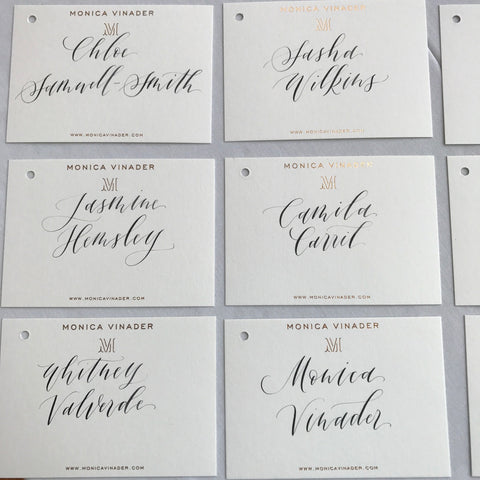 MONICA VINADER
M
Chloe
Samwell-Smith
WWW.MONICAVINADER.COM
MONICA VINADER
M
Sasha
Wilkins
WWW.MONICAVINADER.COM
MONICA VINADER
M
Jasmine
Hemsley
WWW.MONICAVINADER.COM
MONICA VINADER
M
Camila
Carril
WWW.MONICAVINADER.COM
MONICA VINADER
M
Whitney
Valverde
WWW.MONICAVINADER.COM
MONICA VINADER
M
Monica
Vinader
WWW.MONICAVINADER.COM